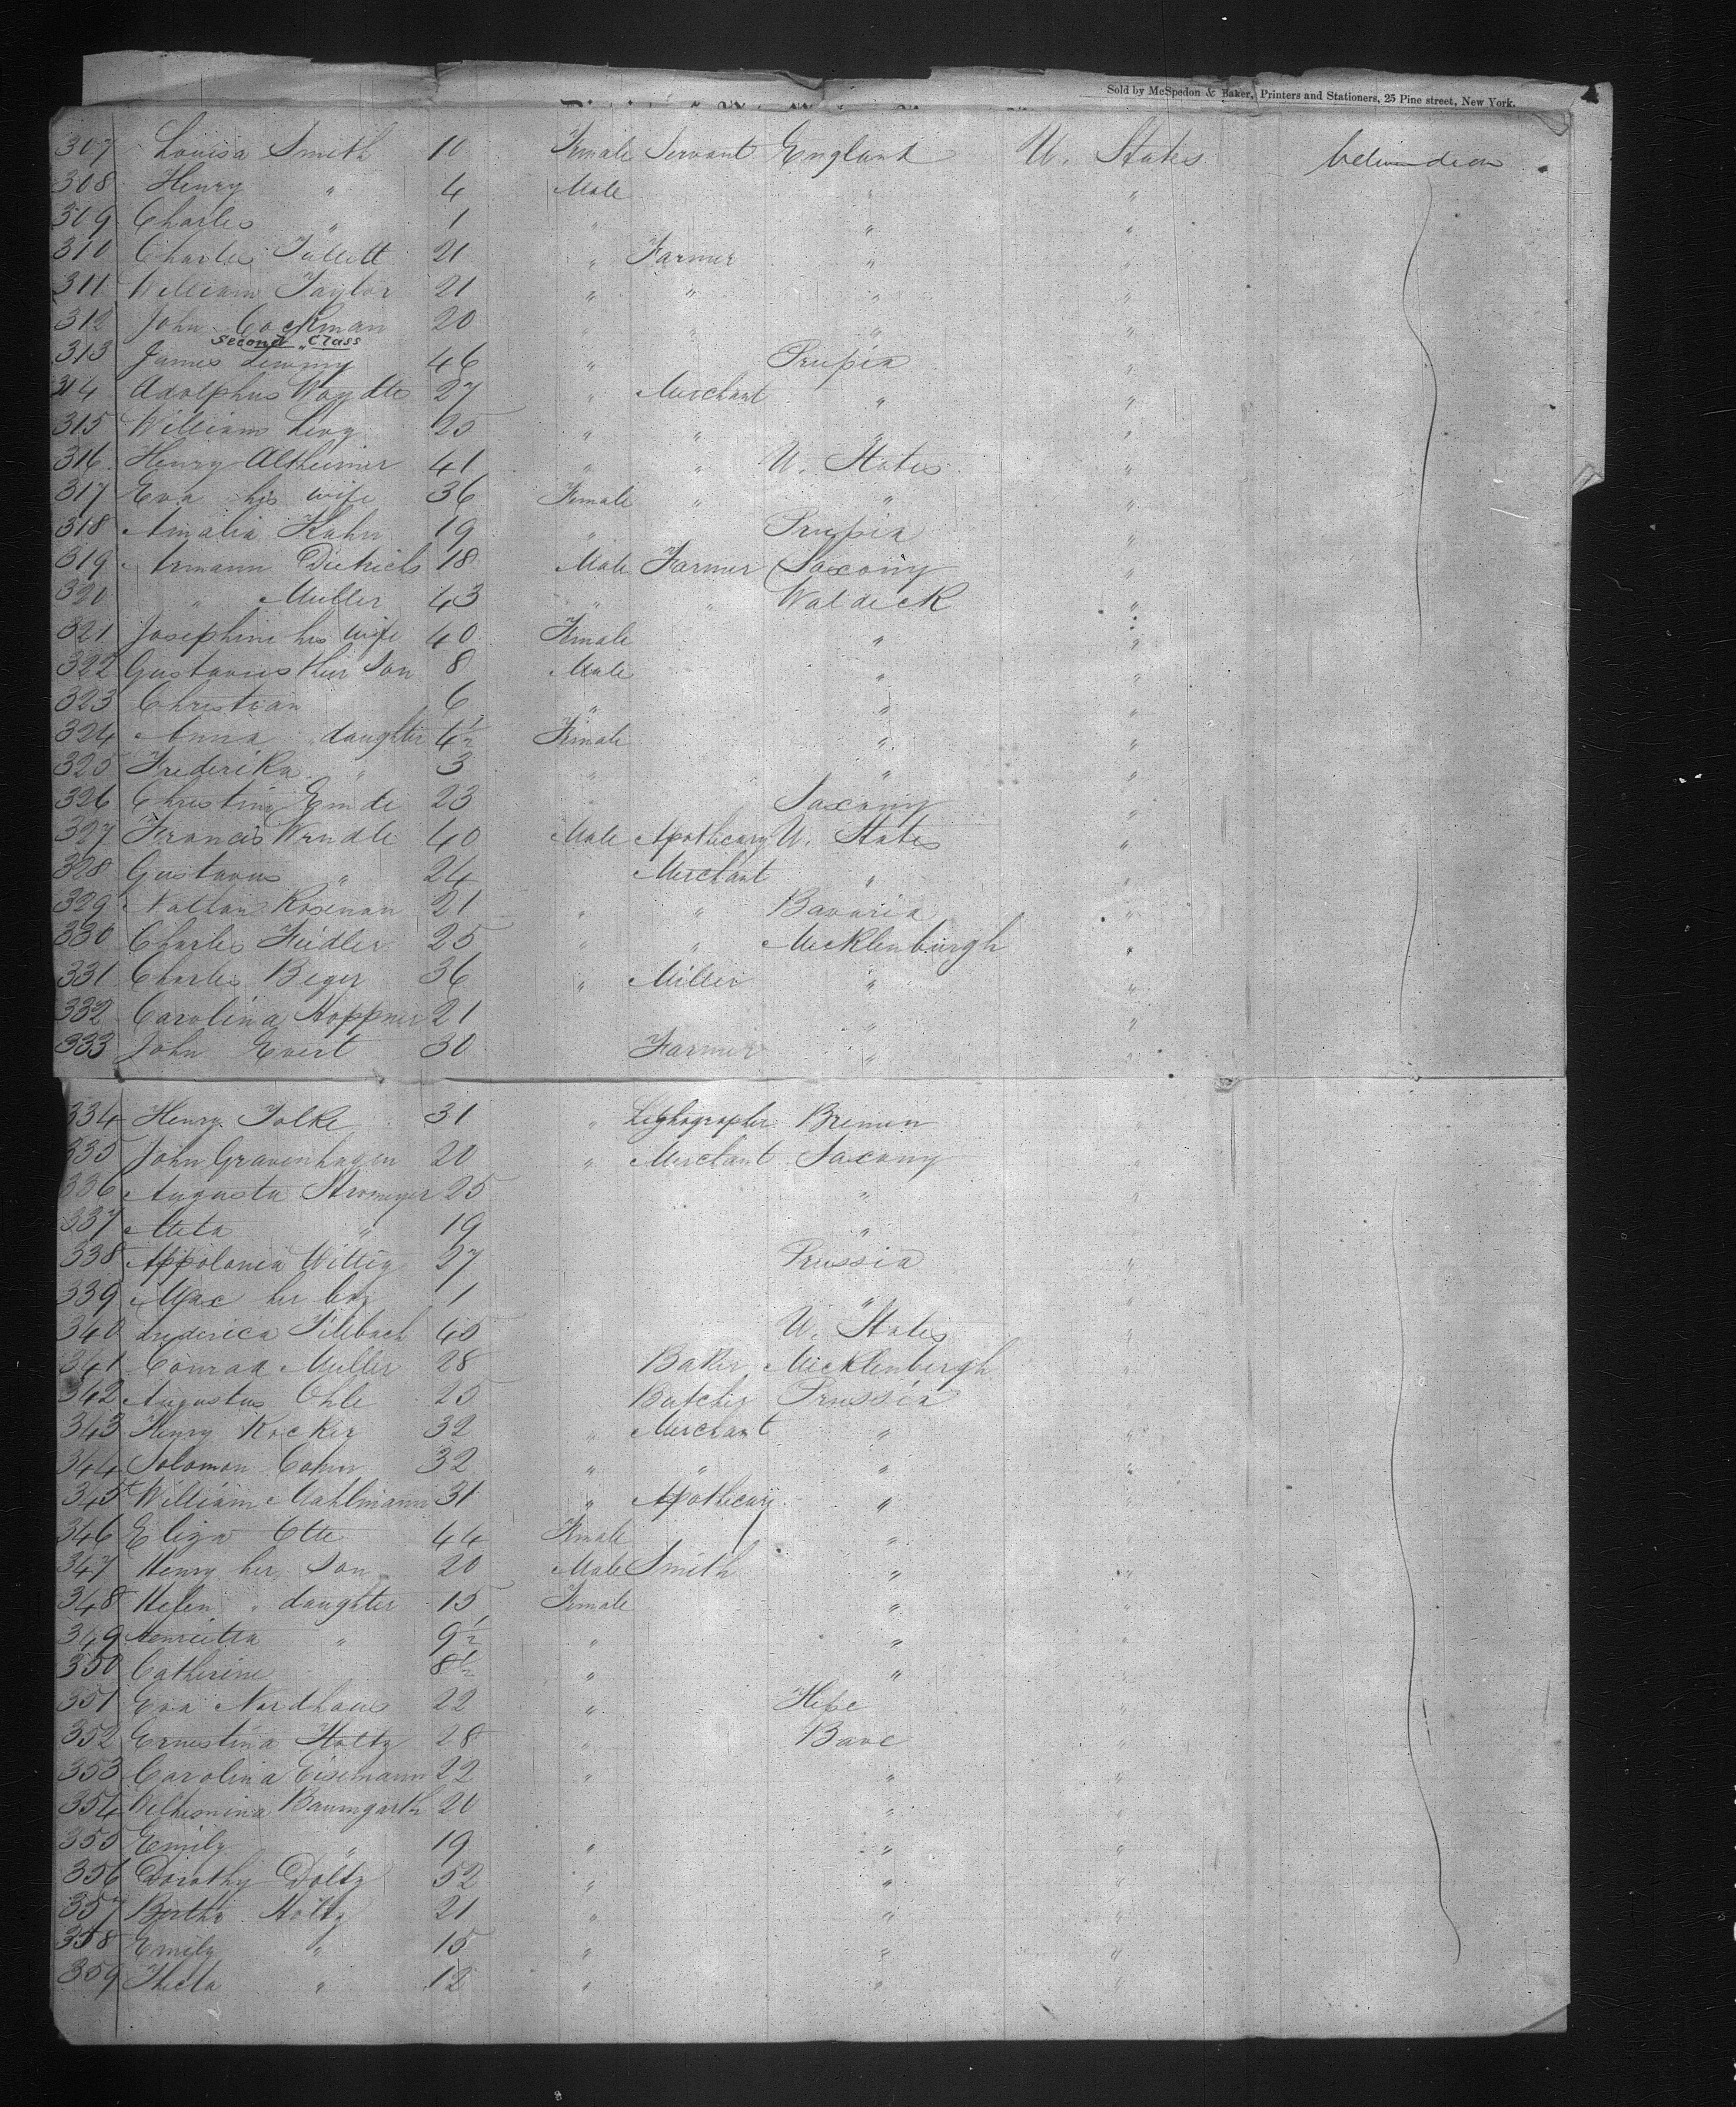 Sold by McSpedon & Baker, Printers and Stationers, 25 Pine street, New York.
307 Louisa Smith 10 Female Servant England U. States
308 Henry " 4 Male " "
309 Charles " 1 " " "
310 Charles 21 " Farmer " "
311 William Taylor 21 " " " "
312 John Cockman 20 " " " "
Second Class
313 James 46 " Prussia "
314 Adolphus 27 " Merchant " "
315 William Levy 25 " " " "
316 Henry Altheimer 41 " " U. States "
317 Eva his wife 36 Female " " "
318 Amalia Kahn 19 " Prussia "
319 Armann Dietrichs 18 Male Farmer Saxony "
320 " Muller 43 " " Waldeck "
321 Josephine his wife 40 Female " "
322 Gustavus their Son 8 Male " "
323 Christian 6 " " "
324 Anna " daughter 4½ Female " "
325 Frederika " 3 " " "
326 Christina Emde 23 " Saxony "
327 Francis Wendle 40 Male Apothecary U. States "
328 Gustavus " 24 Merchant " "
329 Nathan Rosenau 21 " " Bavaria "
330 Charles Fiedler 25 " " Mecklenburgh "
331 Charles Beger 36 " Miller " "
332 Carolina Hoppner 21 " "
333 John Evert 30 Farmer " "
334 Henry Tolke 31 " Lighographer Bremen
335 John Gravenhagen 20 " Merchant Saxony "
336 Augusta Stromeyer 25 " "
337 Meta " 19 "
338 Appolonia Wittig 27 Prussia "
339 Max her boy 1 " "
340 Frederica 45 U. States "
341 Conrad Muller 28 Baker Mecklenbergh "
342 Augustus Ohle 25 Butcher Prussia
343 Henry Kocker 32 " Merchant " "
344 Solomon Cohen 32 " " " "
345 William Mahlmann 31 " Apothecary " "
346 Eliza Otte 44 Female " "
347 Henry her Son 20 Male Smith " "
348 Helen " daughter 15 Female " "
349 Henrietta " 9½ " " "
350 Catherine 8½ " "
351 Eva Nordhaus 22 " Hesse
352 Ernestina Holtz 28 "
353 Carolina Eisemann 22 " " "
354 Wilhelmina Baumgarth 20 " "
355 Emily " 19 " " "
356 Dorothy Doltz 52 " " "
357 Bertha Holtz 21 " " "
358 Emily " 15 " " "
359 Thecla " 12 " " "